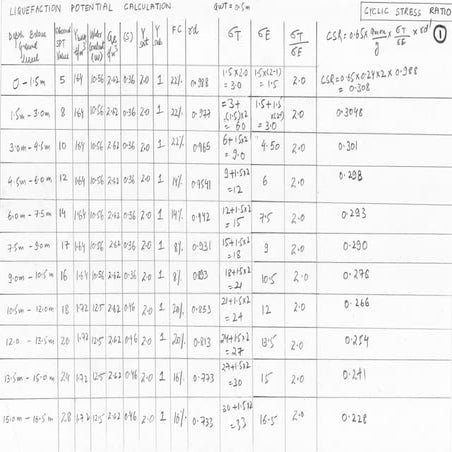 LIQUEFACTION POTENTIAL CALCULATION GWT = 0.5m CYCLIC STRESS RATIO
Depth Below Ground Level SPT Value (S) γ sat γ sub FC rd σT σE σT/σE CSR = 0.65 x amax/g x σT/σE x rd ①
0 - 1.5m 5 1.64 10.56 2.62 0.36 2.0 1 22% 0.988 1.5x2.0 = 3.0 1.5x(2-1) = 1.5 2.0 CSR = 0.65x0.24x2x0.988 = 0.308
1.5m - 3.0m 8 1.64 10.56 2.62 0.36 2.0 1 22% 0.977 =3+(1.5)x2 = 6.0 1.5+1.5 = 3.0 2.0 0.3048
3.0m - 4.5m 10 1.64 10.56 2.62 0.36 2.0 1 22% 0.965 6+1.5x2 = 9.0 4.50 2.0 0.301
4.5m - 6.0m 12 1.64 10.56 2.62 0.36 2.0 1 14% 0.9541 9+1.5x2 = 12 6 2.0 0.298
6.0m - 7.5m 14 1.64 10.56 2.62 0.36 2.0 1 14% 0.942 12+1.5x2 = 15 7.5 2.0 0.293
7.5m - 9.0m 17 1.64 10.56 2.62 0.36 2.0 1 8% 0.931 15+1.5x2 = 18 9 2.0 0.290
9.0m - 10.5m 16 1.64 10.56 2.62 0.36 2.0 1 8% 0.893 18+1.5x2 = 21 10.5 2.0 0.278
10.5m - 12.0m 18 1.72 12.5 2.62 0.46 2.0 1 20% 0.853 21+1.5x2 = 24 12 2.0 0.266
12.0 - 13.5m 20 1.72 12.5 2.62 0.46 2.0 1 20% 0.813 24+1.5x2 = 27 13.5 2.0 0.254
13.5m - 15.0m 24 1.72 12.5 2.62 0.46 2.0 1 16% 0.773 27+1.5x2 = 30 15 2.0 0.241
15.0m - 16.5m 28 1.72 12.5 2.62 0.46 2.0 1 16% 0.733 30+1.5x2 = 33 16.5 2.0 0.228